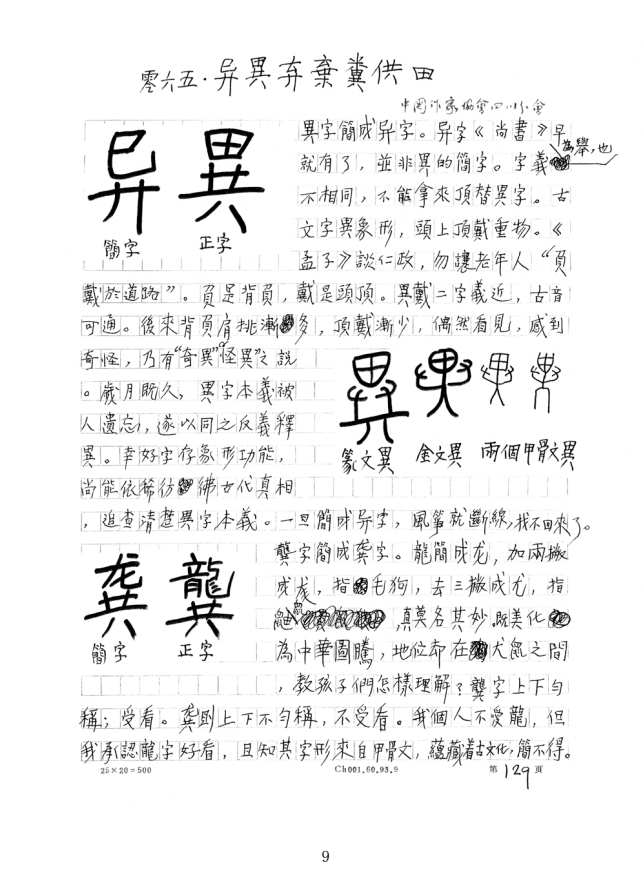 零六五·异異弃棄糞供田
中国作家協會四川分會
異字簡成异字。异字《尚書》早
就有了，並非異的簡字。字義為舉，也
不相同，不能拿來頂替異字。古
文字異象形，頭上頂戴重物。《
孟子》談仁政，勿讓老年人“負
戴於道路”。負是背負，戴是頭頂。異戴二字義近，古音
可通。後來背負肩挑漸多，頂戴漸少，偶然看見，感到
奇怪，乃有“奇異”“怪異”之說
。歲月既久，異字本義被
人遺忘，遂以同之反義釋
異。幸好字存象形功能，
尚能依稀彷彿古代真相
，追查清楚異字本義。一旦簡成异字，風箏就斷線，找不回來了。
异 異
簡字 正字
篆文異 金文異 兩個甲骨文異
龔字簡成龚字。龍簡成龙，加兩撇
成尨，指毛狗，去三撇成尤，指
鼬，真莫名其妙。既美化
為中華圖騰，地位却在犬鼠之間
，教孩子們怎樣理解？龔字上下勻
稱；受看。龚則上下不勻稱，不受看。我個人不愛龍，但
我承認龍字好看，且知其字形來自甲骨文，蘊藏着古文化，簡不得。
龚 龔
簡字 正字
25×20=500 Ch001.60.93.9 第129頁
9